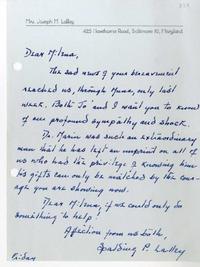 Mrs. Joseph M. Lalley
425 Hawthorne Road, Baltimore 10, Maryland
Dear Milena,
The sad news of your bereavement
reached us, through Muna, only last
week. Both Jo and I want you to know
of our profound sympathy and shock.
Dr. Marin was such an extraordinary
man that he has left an imprint on all of
us who had the privilege of knowing him
his gifts can only be matched by the cour-
age you are showing now.
Dear Milena, if we could only do
something to help!
Affection from us both,
Spalding P. Lalley
Friday